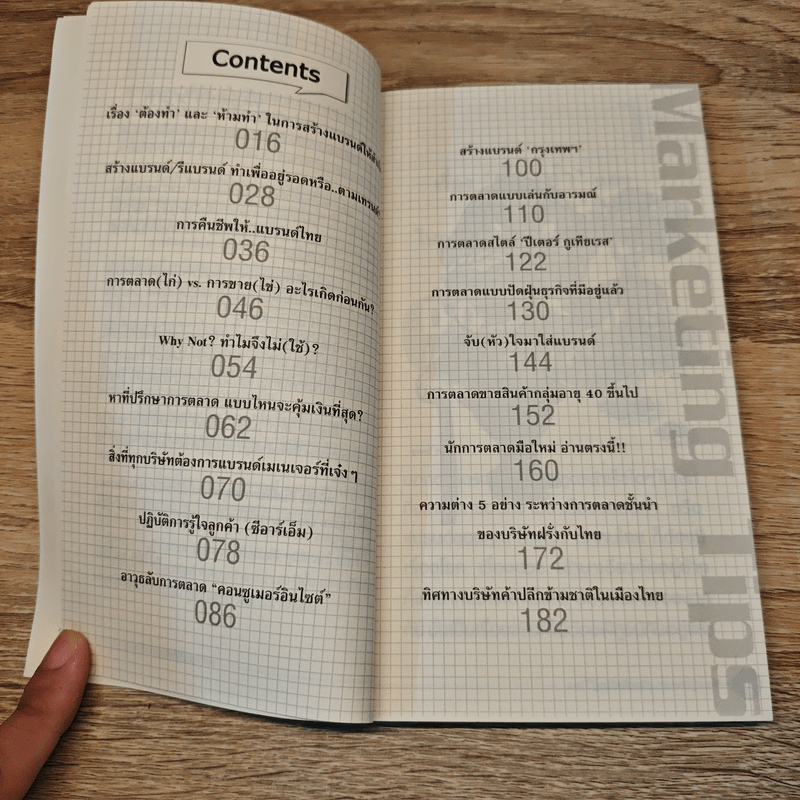 Contents
เรื่อง 'ต้องทำ' และ 'ห้ามทำ' ในการสร้างแบรนด์
016
สร้างแบรนด์/รีแบรนด์ ทำเพื่ออยู่รอดหรือ..ตามเทรนด์
028
การคืนชีพให้..แบรนด์ไทย
036
การตลาด(ไก่) vs. การขาย(ไข่) อะไรเกิดก่อนกัน?
046
Why Not? ทำไมจึงไม่(ใช้)?
054
หาที่ปรึกษาการตลาด แบบไหนจะคุ้มเงินที่สุด?
062
สิ่งที่ทุกบริษัทต้องการแบรนด์เมเนเจอร์ที่เจ๋งๆ
070
ปฏิบัติการรู้ใจลูกค้า (ซีอาร์เอ็ม)
078
อาวุธลับการตลาด "คอนซูเมอร์อินไซต์"
086
สร้างแบรนด์ 'กรุงเทพฯ'
100
การตลาดแบบเล่นกับอารมณ์
110
การตลาดสไตล์ 'ปีเตอร์ กูเทียเรส'
122
การตลาดแบบปัดฝุ่นธุรกิจที่มีอยู่แล้ว
130
จับ(หัว)ใจมาใส่แบรนด์
144
การตลาดขายสินค้ากลุ่มอายุ 40 ขึ้นไป
152
นักการตลาดมือใหม่ อ่านตรงนี้!!
160
ความต่าง 5 อย่าง ระหว่างการตลาดชั้นนำ
ของบริษัทฝรั่งกับไทย
172
ทิศทางบริษัทค้าปลีกข้ามชาติในเมืองไทย
182
Marketing Tips